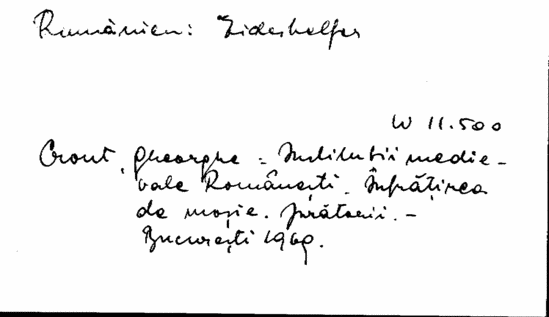 Rumänien: Eideshelfer
W 11.500
Cront, Gheorghe: Instituţii medie-
vale Româneşti. Înfrăţirea
de moşie. Jurătorii. -
Bucureşti 1969.